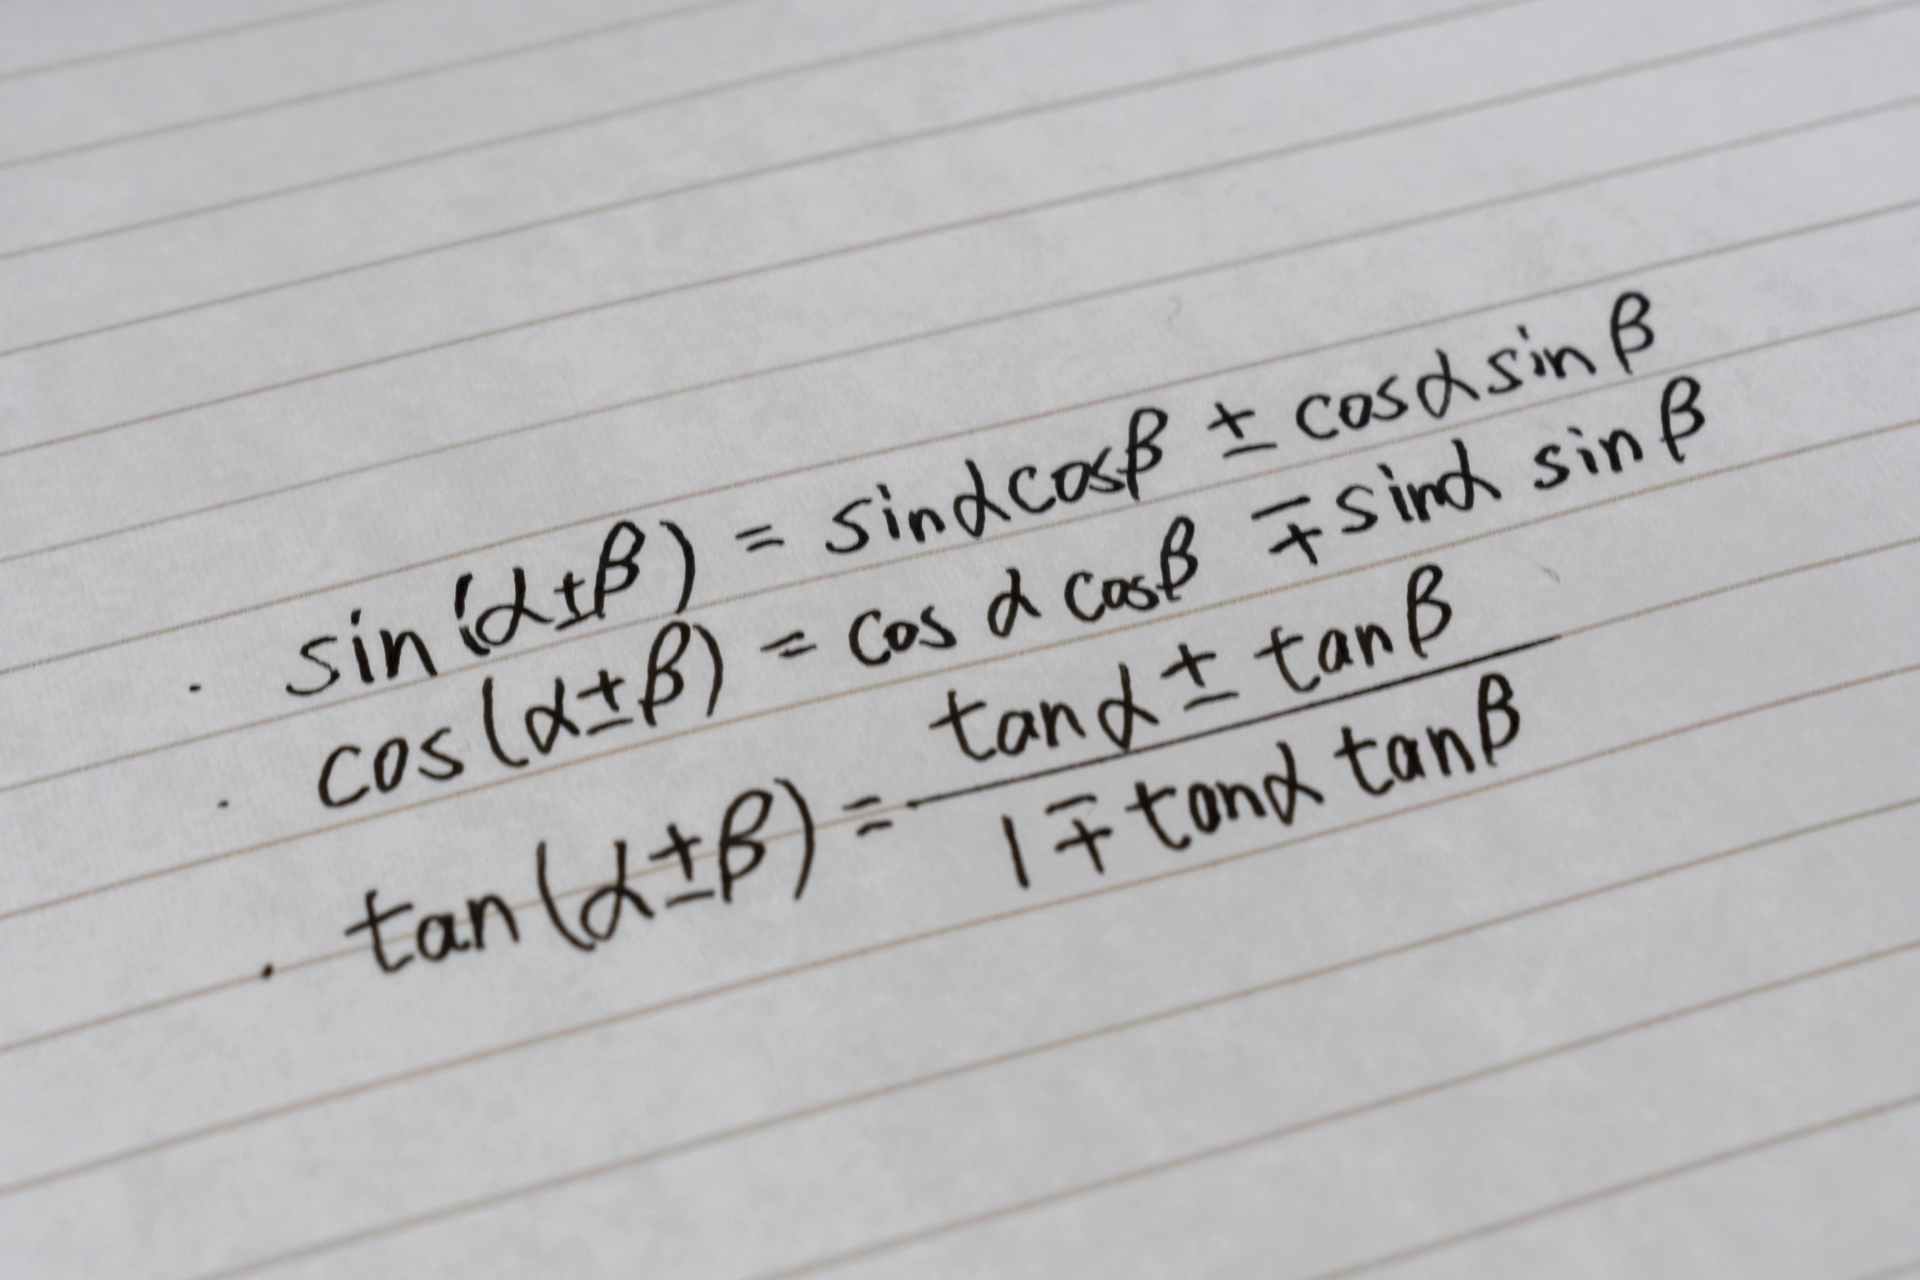 · sin(α±β) = sinαcosβ ± cosαsinβ
· cos(α±β) = cosαcosβ ∓ sinα sinβ
· tan(α±β) = (tanα ± tanβ)/(1 ∓ tanα tanβ)